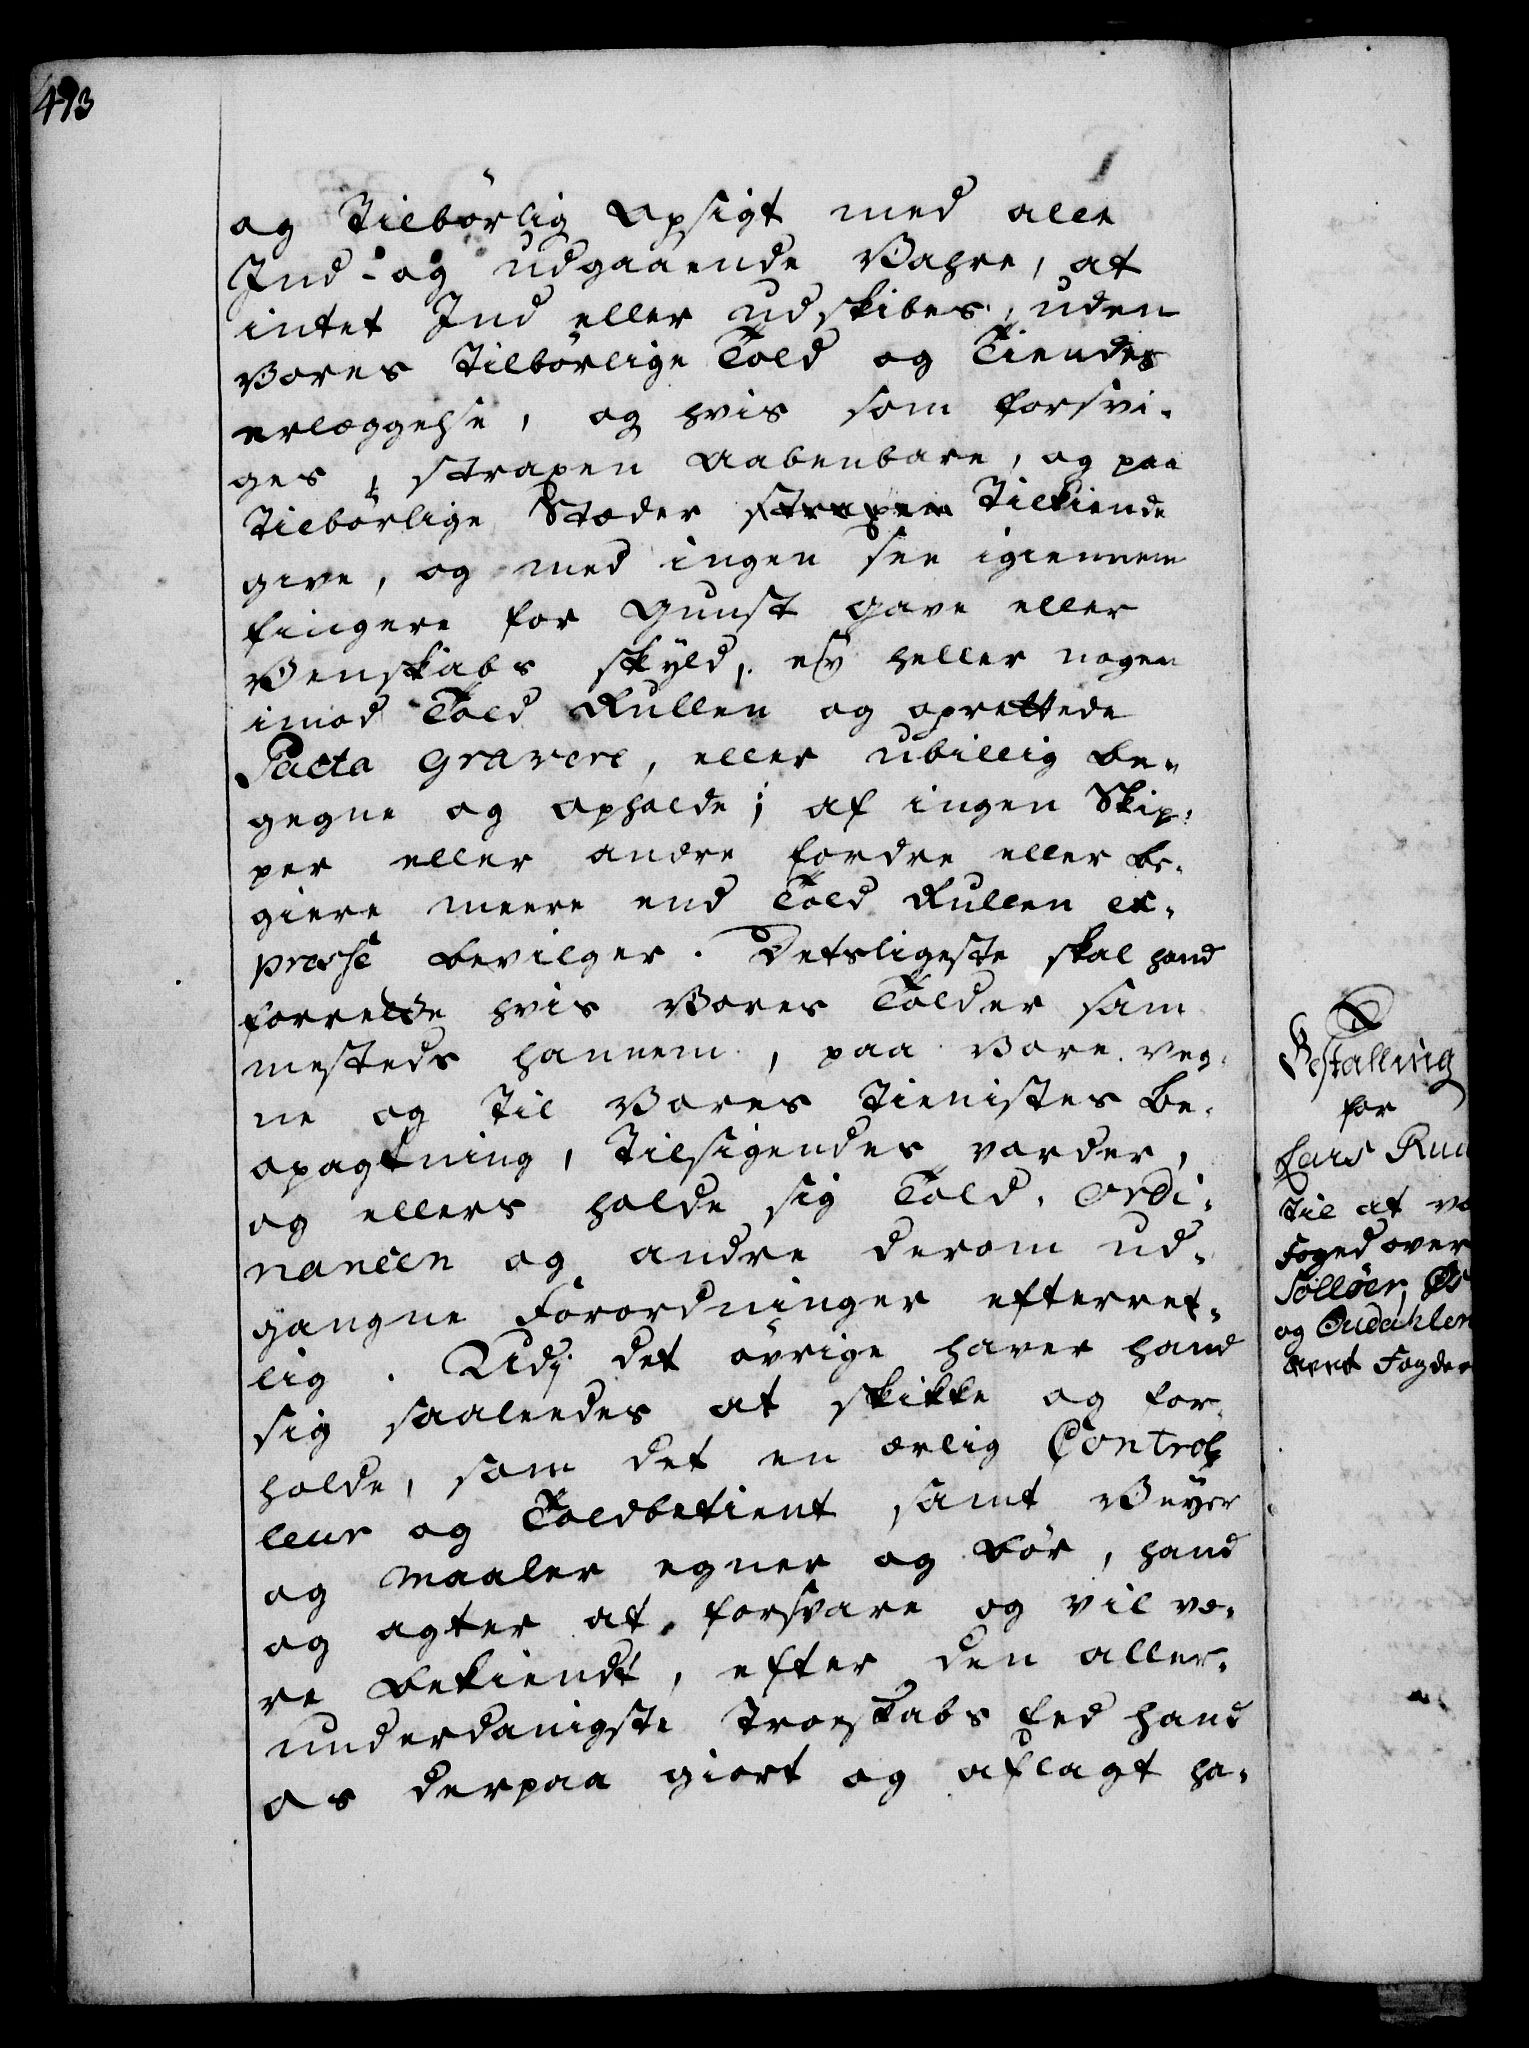 493
og Tilbørlig Opsigt med alle
Ind- og udgaaende Vahre, at
intet Ind eller udskibes, uden
Vores Tilbørlige Told og Tiendes
erlæggelse, og hvis som forsvi-
ges, straxen Aabenbare, og paa
Tilbørlige Stæder straxen Tilkiende
give, og med ingen see igiennem
fingere for Gunst Gave eller
Venskabs skÿld, eÿ heller nogen
imod Told Rullen og oprettede
Pacta Gravere, eller ubillig be-
gegne og opholde; af ingen Skip-
per eller andre fordre eller be-
giere meere end Told Rullen ex-
presse bevilger. Desligeste skal hand
forrette hvis Vores Tolder sam
mesteds hannem, paa Vore Veg-
ne og Til Vores Tienistes be-
opagtning, Tilsigendes vorder,
og ellers holde sig Told. Ordi-
nancen og andre derom ud-
gangne Forordninger efterret-
lig. Udj det øvrige haver hand
sig saaleedes at skikke og for-
holde, som det en ærlig Control-
leur og Toldbetient samt Veÿer
og Maaler egner og bør, hand
og agter at forsvare og vil væ-
re bekiendt, efter den aller-
underdanigste Troeskabs Eed hand
os derpaa giort og aflagt ha-
Bestalling
for
Lars Ruu
Til at væ
Foged over
Solløer, Øs
og Oudahlen
Fogder